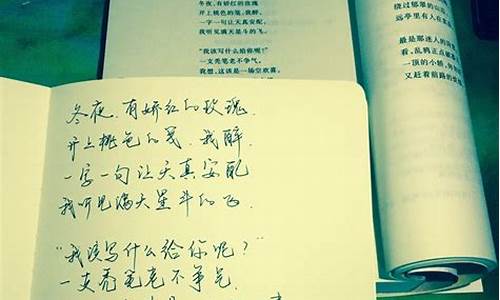 冬夜,有娇红的玫瑰
并上桃色的笺,我醉,
一字一句让天真安配,
我听见满天星斗的飞。
“我该写什么给你呢?”
一支秃笔老不争气,
我想,这该是一场空欢喜,
绕过郁翠的山
远亭里有人在
最是那迷人的
看,乱鸦正点
一顶的小轿,
又赶着前路的
冬夜,有娇红的玫瑰,
并上桃色的笺,我醉,
一字一句让天真安配
我听见满天星斗的飞.
“我该写什么给你呢?”
一支秃笔老不争气,